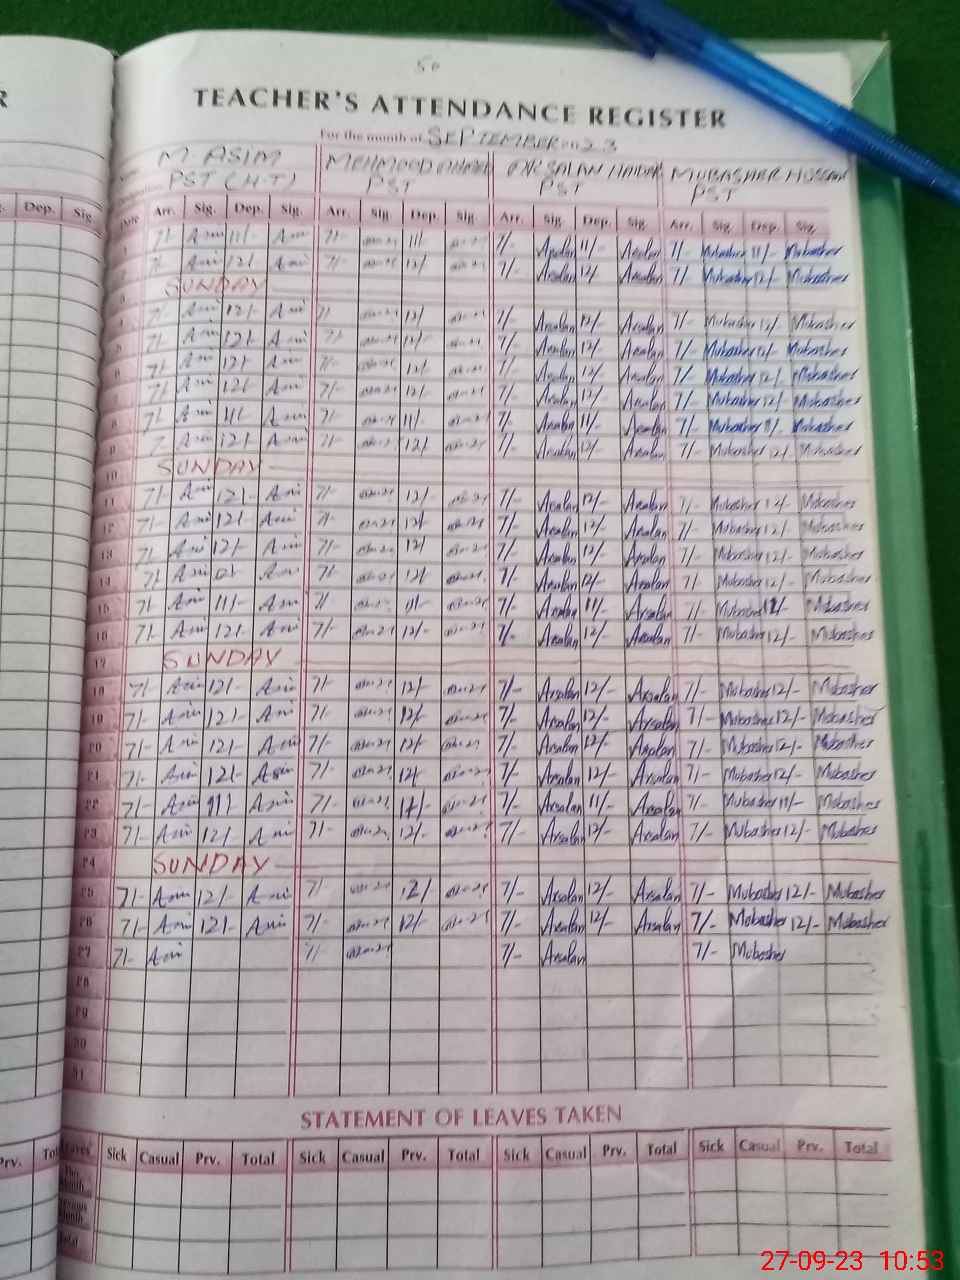 50
R TEACHER'S ATTENDANCE REGISTER
For the month of SEPTEMBER 2023
M ASIM MEHMOOD MUBASHER HUSSAIN
PST (H-T) PST PST PST
Dep. Sig. Date Arr. Sig. Dep. Sig. Arr. Sig Dep. Sig. Arr. Sig. Dep. Sig. Arr. Sig. Dep. Sig.
1 7/- Asim 11/- Asim 7/- 11/- 7/- Arsalan 11/- Arsalan 7/- Mubasher 11/- Mubasher
2 7/- Asim 12/- Asim 7/- 12/- 7/- Arsalan 12/- Arsalan 7/- Mubasher 12/- Mubasher
3 SUNDAY
4 7/- Asim 12/- Asim 7/- 12/- 7/- Arsalan 12/- Arsalan 7/- Mubasher 12/- Mubasher
5 7/- Asim 12/- Asim 7/- 12/- 7/- Arsalan 12/- Arsalan 7/- Mubasher 12/- Mubasher
6 7/- Asim 12/- Asim 7/- 12/- 7/- Arsalan 12/- Arsalan 7/- Mubasher 12/- Mubasher
7 7/- Asim 12/- Asim 7/- 12/- 7/- Arsalan 12/- Arsalan 7/- Mubasher 12/- Mubasher
8 7/- Asim 11/- Asim 7/- 11/- 7/- Arsalan 11/- Arsalan 7/- Mubasher 11/- Mubasher
9 7/- Asim 12/- Asim 7/- 12/- 7/- Arsalan 12/- Arsalan 7/- Mubasher 12/- Mubasher
10 SUNDAY
11 7/- Asim 12/- Asim 7/- 12/- 7/- Arsalan 12/- Arsalan 7/- Mubasher 12/- Mubasher
12 7/- Asim 12/- Asim 7/- 12/- 7/- Arsalan 12/- Arsalan 7/- Mubasher 12/- Mubasher
13 7/- Asim 12/- Asim 7/- 12/ 7/- Arsalan 12/- Arsalan 7/- Mubasher 12/- Mubasher
14 7/- Asim 12/- Asim 7/- 12/ 7/- Arsalan 12/- Arsalan 7/- Mubasher 12/- Mubasher
15 7/- Asim 11/- Asim 7/- 11/- 7/- Arsalan 11/- Arsalan 7/- Mubasher Mubasher
16 7/- Asim 12/- Asim 7/- 12/- 7/- Arsalan 12/- Arsalan 7/- Mubasher 12/- Mubasher
17 SUNDAY
18 7/- Asim 12/- Asim 7/- 12/- 7/- Arsalan 12/- Arsalan 7/- Mubasher 12/- Mubasher
19 7/- Asim 12/- Asim 7/- 12/- 7/- Arsalan 12/- Arsalan 7/- Mubasher 12/- Mubasher
20 7/- Asim 12/- Asim 7/- 12/- 7/- Arsalan 12/- Arsalan 7/- Mubasher 12/- Mubasher
21 7/- Asim 12/- Asim 7/- 12/- 7/- Arsalan 12/- Arsalan 7/- Mubasher 12/- Mubasher
22 7/- Asim 11/- Asim 7/- 11/- 7/- Arsalan 11/- Arsalan 7/- Mubasher 11/- Mubasher
23 7/- Asim 12/- Asim 7/- 12/- 7/- Arsalan 12/- Arsalan 7/- Mubasher 12/- Mubasher
24 SUNDAY
25 7/- Asim 12/- Asim 7/- 12/- 7/- Arsalan 12/- Arsalan 7/- Mubasher 12/- Mubasher
26 7/- Asim 12/- Asim 7/- 12/- 7/- Arsalan 12/- Arsalan 7/- Mubasher 12/- Mubasher
27 7/- Asim 7/- 7/- Arsalan 7/- Mubasher
28
29
30
31
STATEMENT OF LEAVES TAKEN
Prv. Leaves Sick Casual Prv. Total Sick Casual Prv. Total Sick Casual Prv. Total Sick Casual Prv. Total
This Month
Total
27-09-23 10:53